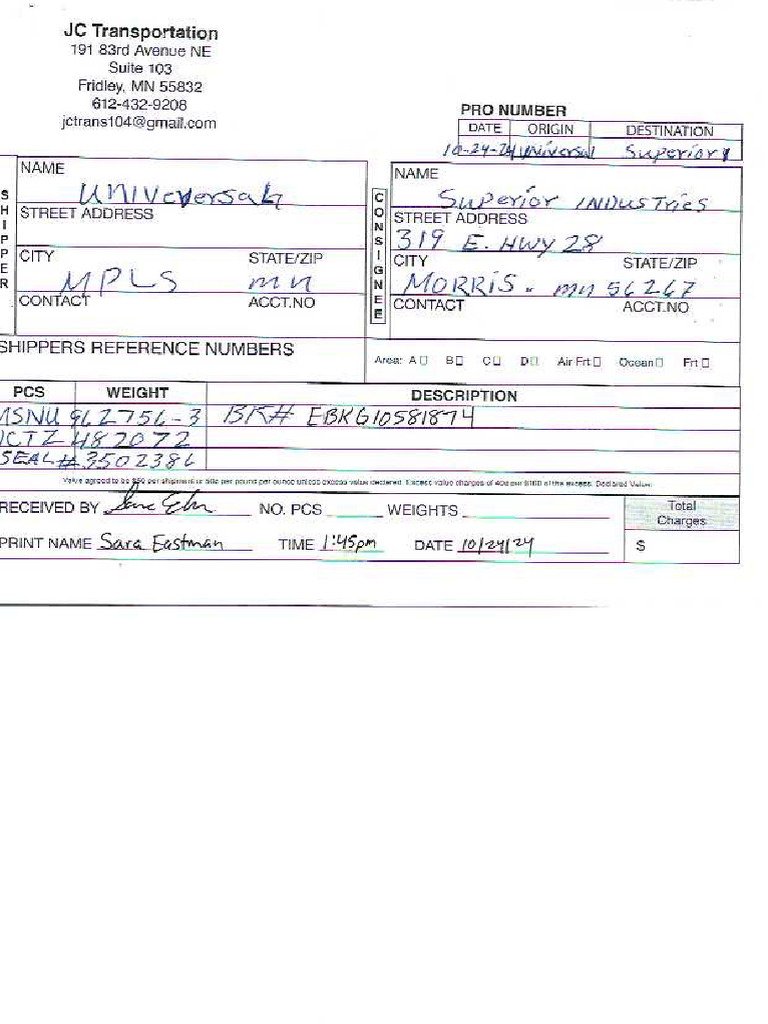 JC Transportation
191 83rd Avenue NE
Suite 103
Fridley, MN 55832
612-432-9208
jctrans104@gmail.com
PRO NUMBER
DATE ORIGIN DESTINATION
10-24-24 Universal Superior
SHIPPER
NAME
Universal
STREET ADDRESS
CITY STATE/ZIP
MPLS mn
CONTACT ACCT.NO
CONSIGNEE
NAME
Superior INDUSTries
STREET ADDRESS
319 E. HWY 28
CITY STATE/ZIP
MORRIS. mn 56267
CONTACT ACCT.NO
SHIPPERS REFERENCE NUMBERS
Area: A B C D Air Frt Ocean Frt
PCS WEIGHT DESCRIPTION
MSNU 962756-3 BK# EBKG10581874
482072
SEAL# 3502386
Value agreed to be $50 per shipment or
per pound per ounce unless excess value declared. Excess value charges of 40¢ per $100 of the excess. Declared Value
RECEIVED BY NO. PCS WEIGHTS
Total
Charges
PRINT NAME Sara Eastman TIME 1:45pm DATE 10/24/24
$